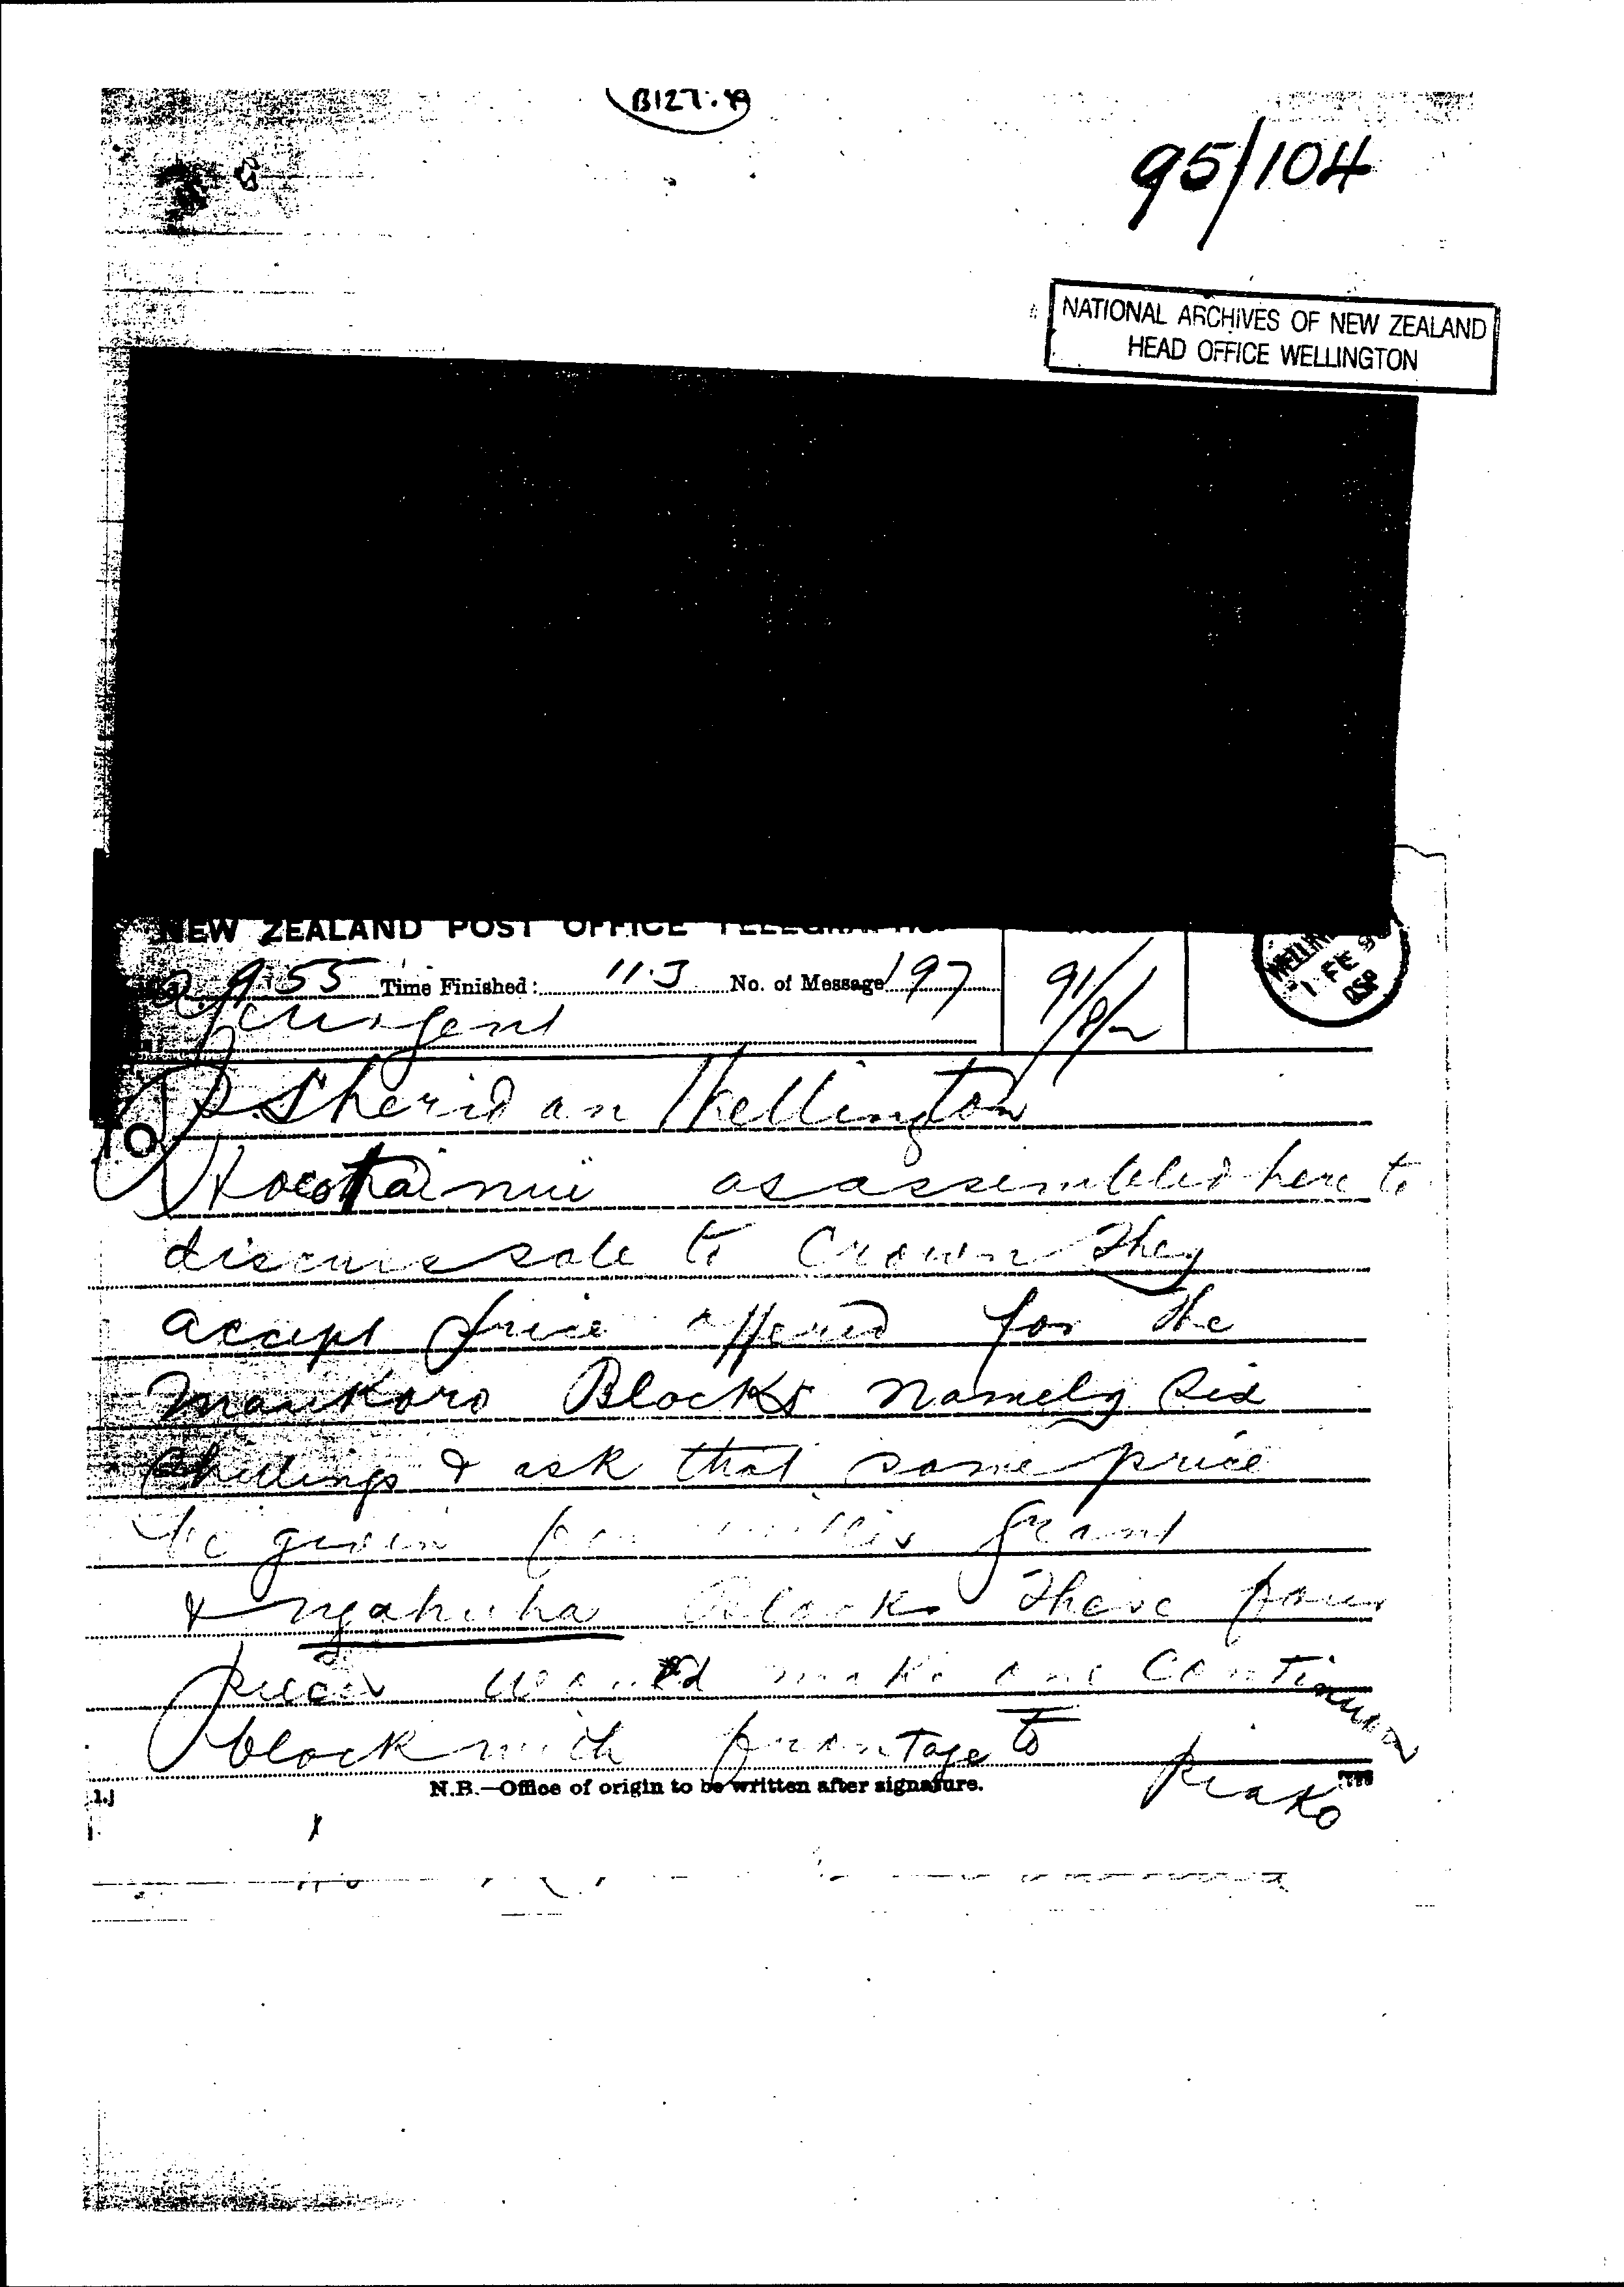 B127.49
95/104
NATIONAL ARCHIVES OF NEW ZEALAND
HEAD OFFICE WELLINGTON
NEW ZEALAND POST OFFICE
9.55 Time Finished: 11.3 No. of Message 197
Urgent
91/8/2
1 FE
TO P. Sheridan Wellington
as assembled here to
discuss sale to Crown They
accept price offered for the
Maukoro Blocks namely Six
Shillings & ask that same price
be given for grant
& ngahuha Blocks These four
pieces would make one Continuous
block with frontage to
Piako
N.B.—Office of origin to be written after signature.